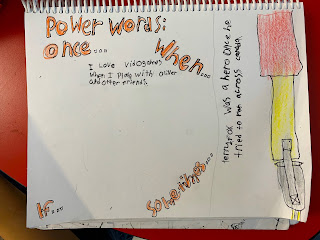 Power Words:
Once...
When...
I Love videogames
When I Play with oliver
and other friends.
If....
Sometimes...
was a hero once he
tried to run across